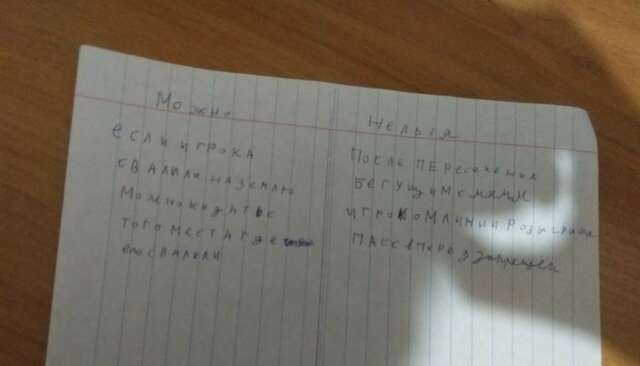 Можно
если игрока
свалили на землю
можно кидать с
того места где
его свалили
Нельзя
после пересечения
бегущим с мячом
игроком линии розыгрыша
пасс вперед запрещен